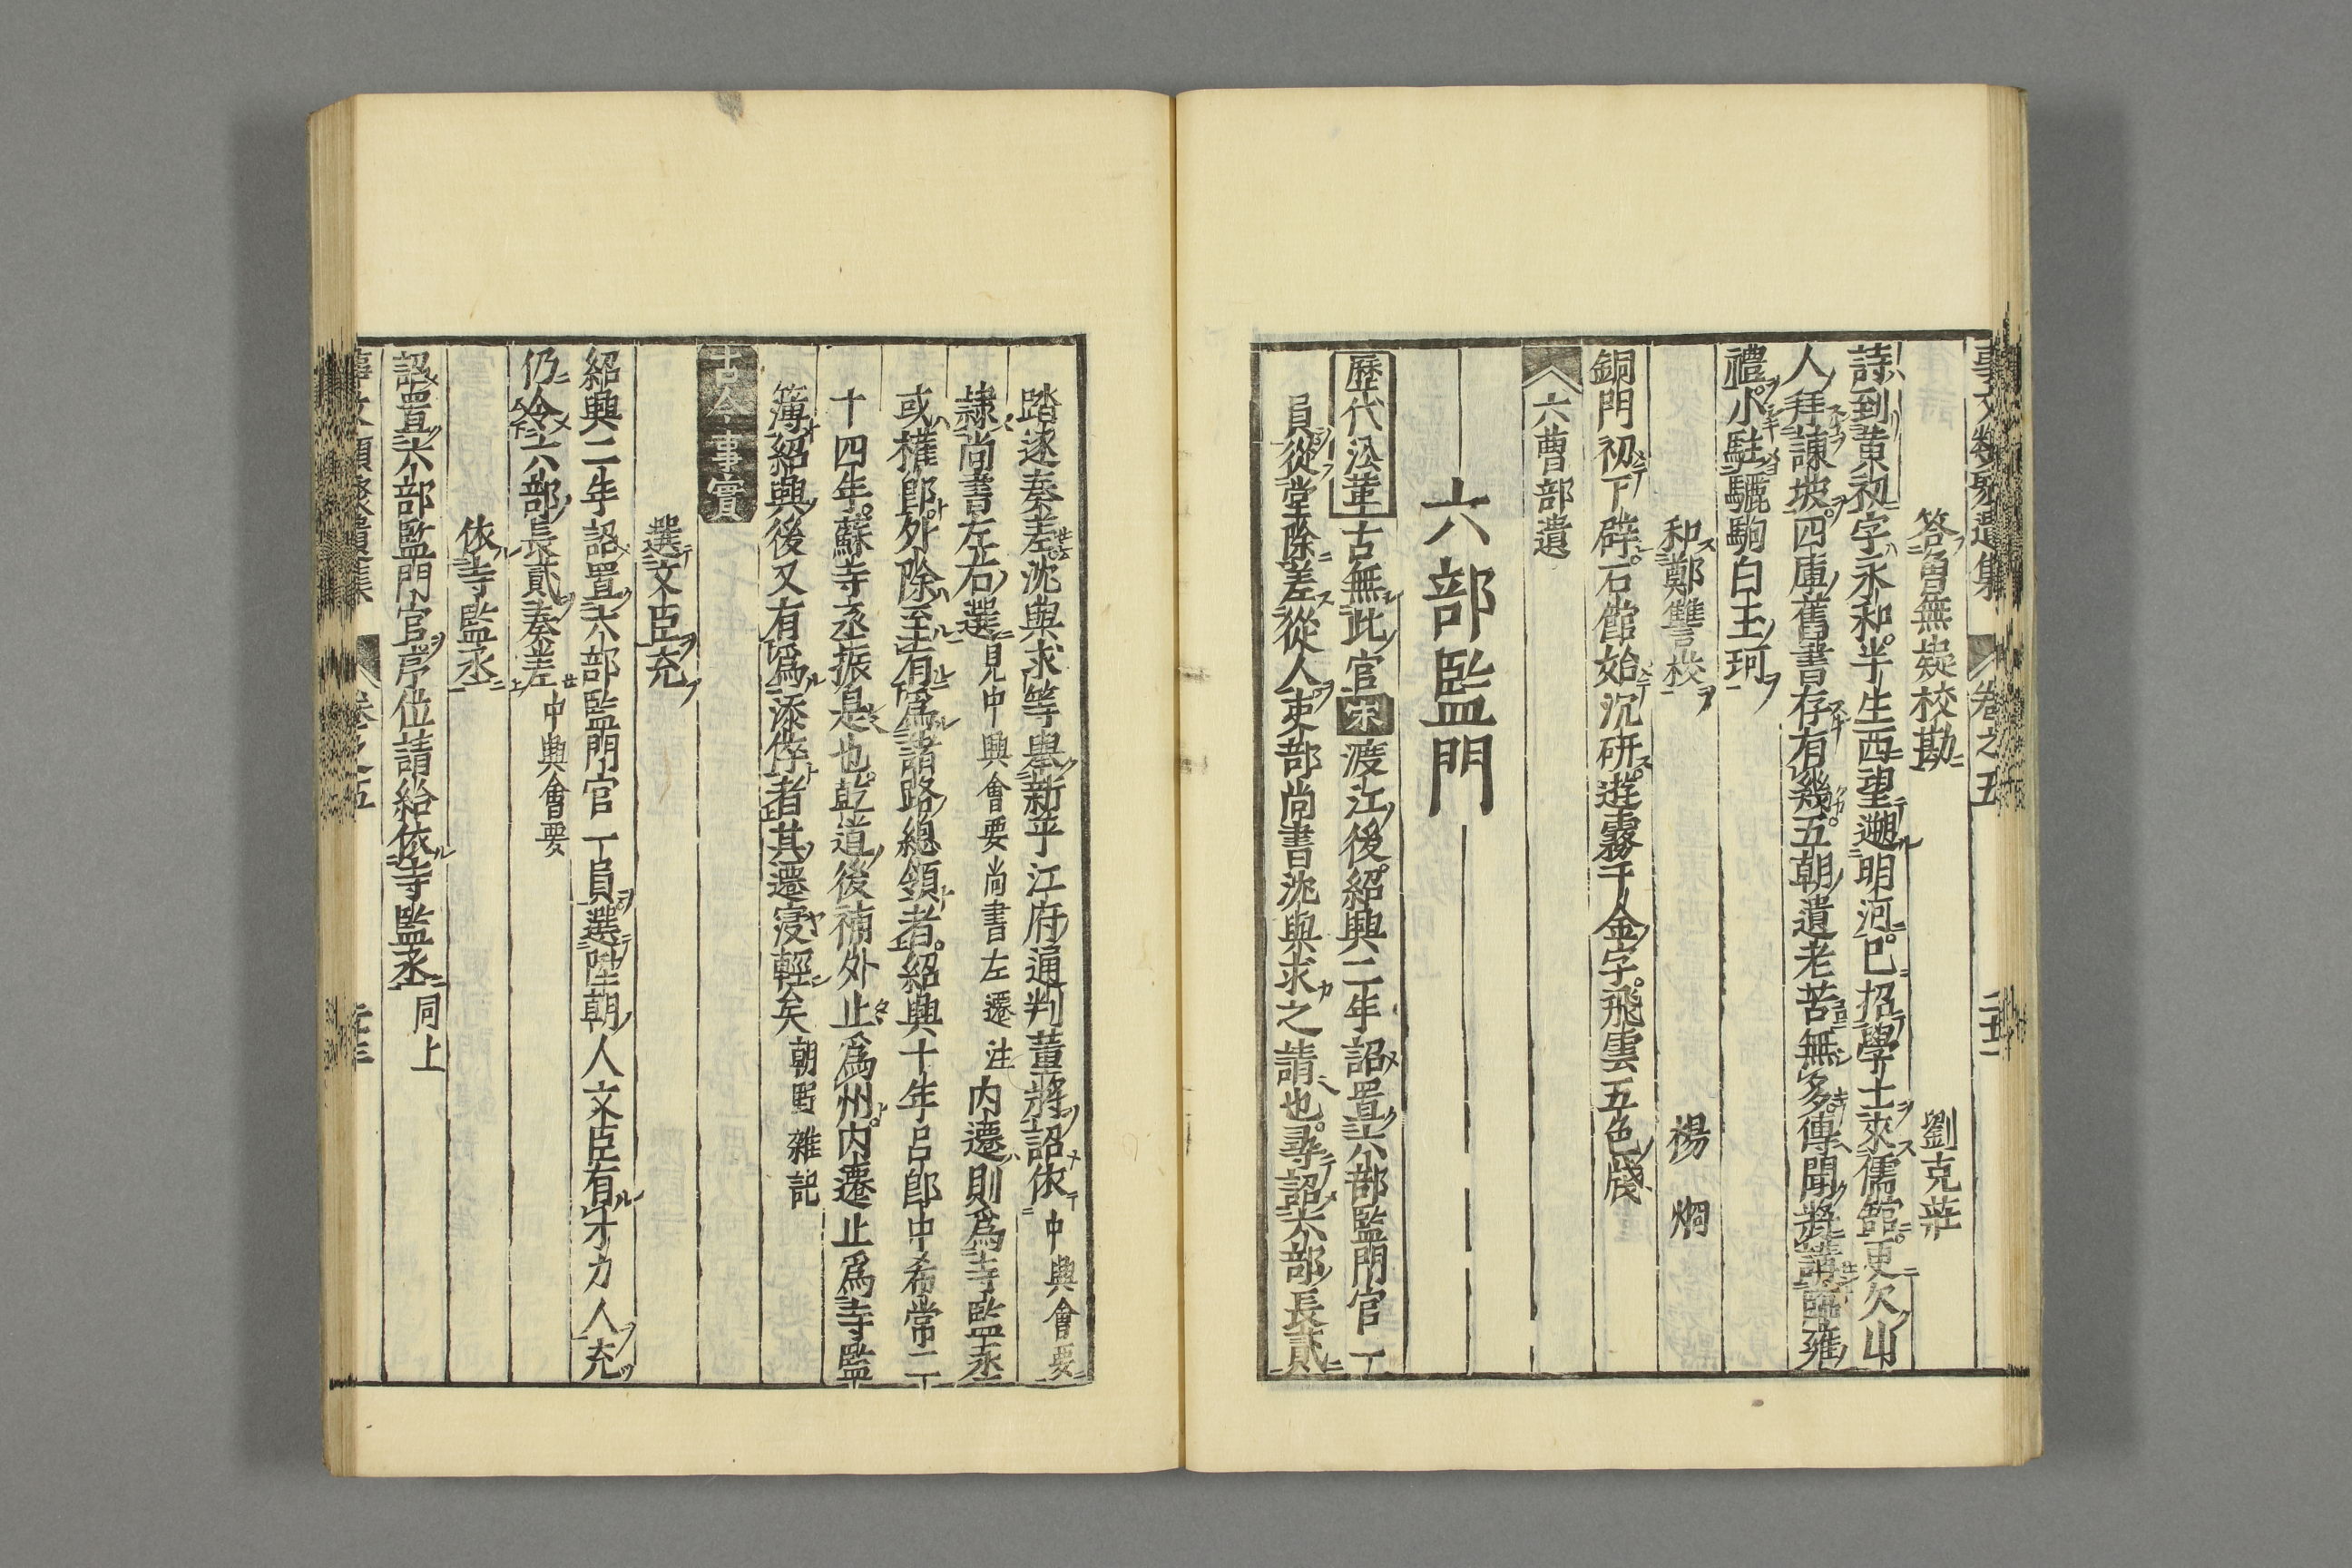 事文類聚遺集 卷之五
答曾無疑校勘 劉克莊
詩到黄初字永和半生西望遡明河已招學士來儒館更欠山
人拜諫坡四庫舊書存有幾五朝遺老苦無多傳聞將講臨雍
禮小駐驪駒白玉珂
和鄭讐校 楊炯
銅門初下辟石館始沉研遊霧千金字飛雲五色牋
六曹部遺
六部監門
歷代沿革古無此官宋渡江後紹興二年詔置六部監門官一
員從堂除差從人吏部尚書沈與求之請也尋詔六部長貳
踏逐奏差沈與求等舉新平江府通判董將詔依中興會要
隷尚書左右選見中興會要尚書左遷注内遷則爲寺監丞
或權郎外除至有爲諸路總領者紹興十年呂郎中希常二
十四年蘇寺丞振是也乾道後補外止爲州内遷止爲寺監
簿紹興後又有爲添倅者其遷寖輕矣朝野雜記
古今事實
選文臣充
紹興二年詔置六部監門官一員選陞朝人文臣有才力人充
仍令六部長貳奏差中興會要
依寺監丞
詔置六部監門官序位請給依寺監丞同上
卷之五